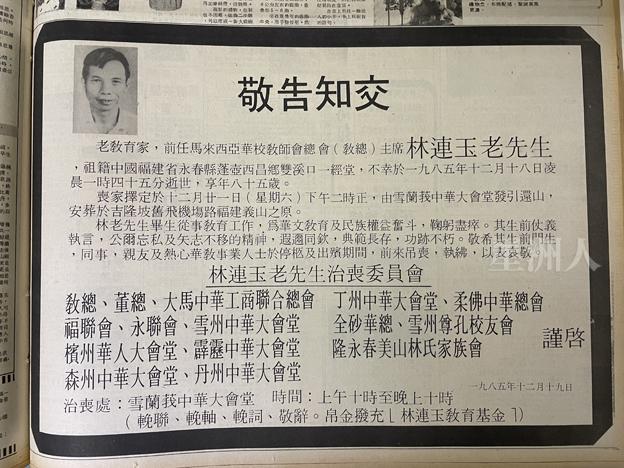 敬告知交
老敎育家,前任馬來西亞華校敎師會總會(敎總)主席林連玉老先生
,祖籍中國福建省永春縣蓬壺西昌鄉雙溪口一經堂,不幸於一九八五年十二月十八日凌
晨一時四十五分逝世,享年八十五歲。
喪家擇定於十二月廿一日(星期六)下午二時正,由雪蘭莪中華大會堂發引還山,
安葬於吉隆坡舊飛機塲路福建義山之原。
林老先生畢生從事敎育工作,爲華文敎育及民族權益奮斗,鞠躬盡瘁。其生前仗義
執言,公爾忘私及矢志不移的精神,遐邇同欽,典範長存,功跡不朽。敬希其生前門生
,同事,親友及熱心華敎事業人士於停柩及出殯期間,前來吊喪,執紼,以表哀敬。
林連玉老先生治喪委員會
敎總、董總、大馬中華工商聯合總會 丁州中華大會堂、柔佛中華總會
福聯會、永聯會、雪州中華大會堂 全砂華總、雪州尊孔校友會
檳州華人大會堂、霹靂中華大會堂 隆永春美山林氏家族會
森州中華大會堂、丹州中華大會堂
謹啓
一九八五年十二月十九日
治喪處:雪蘭莪中華大會堂 時間:上午十時至晚上十時
(輓聯、輓軸、輓詞、敬辭。帛金撥充「林連玉敎育基金」)
星洲人